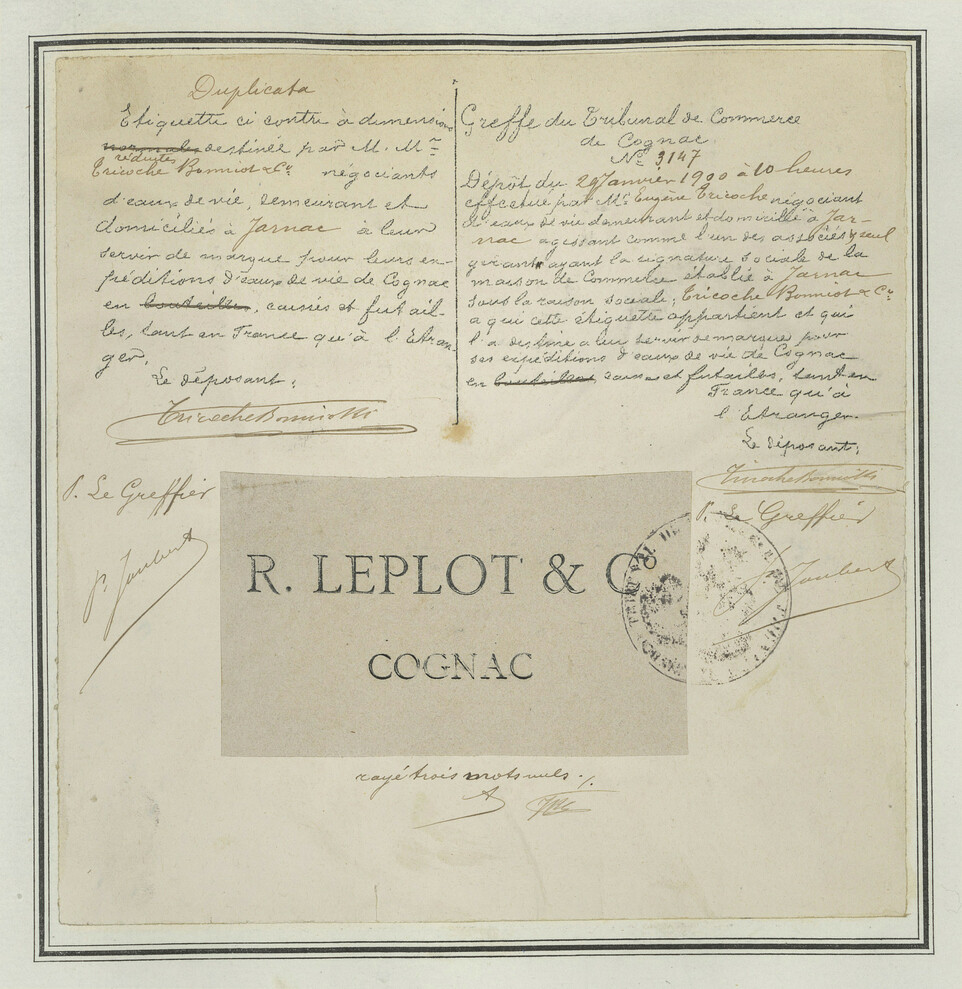 Duplicata
Etiquette ci contre à dimensions
normales destinée par M. Mrs
réduites
Tricoche Bonniot & Co négociants
d'eaux de vie, demeurant et
domiciliés à Jarnac à leur
servir de marque pour leurs ex-
péditions d'eaux de vie de Cognac
en bouteilles, caisses et futail-
les, tant en France qu'à l'Etran-
ger.
Le déposant,
Tricoche Bonniot & Co
P. Le Greffier
P. Joubert
Greffe du Tribunal de Commerce
de Cognac
No 3147
Dépôt du 29 Janvier 1900 à 10 heures
effectué par Mr Eugène Tricoche négociant
d'eaux de vie demeurant et domicilié à Jar-
nac agissant comme l'un des associés & seul
gérant ayant la signature sociale de la
maison de Commerce établie à Jarnac
sous la raison sociale; Tricoche Bonniot & Co
a qui cette étiquette appartient et qui
l'a destine a lui servir de marque pour
ses expéditions d'eaux de vie de Cognac
en bouteilles, caisses et futailles, tant en
France qu'à
l'Etranger.
Le déposant,
Tricoche Bonniot & Co
P. Le Greffier
P. Joubert
R. LEPLOT & Co
COGNAC
rayé trois mots nuls ./.